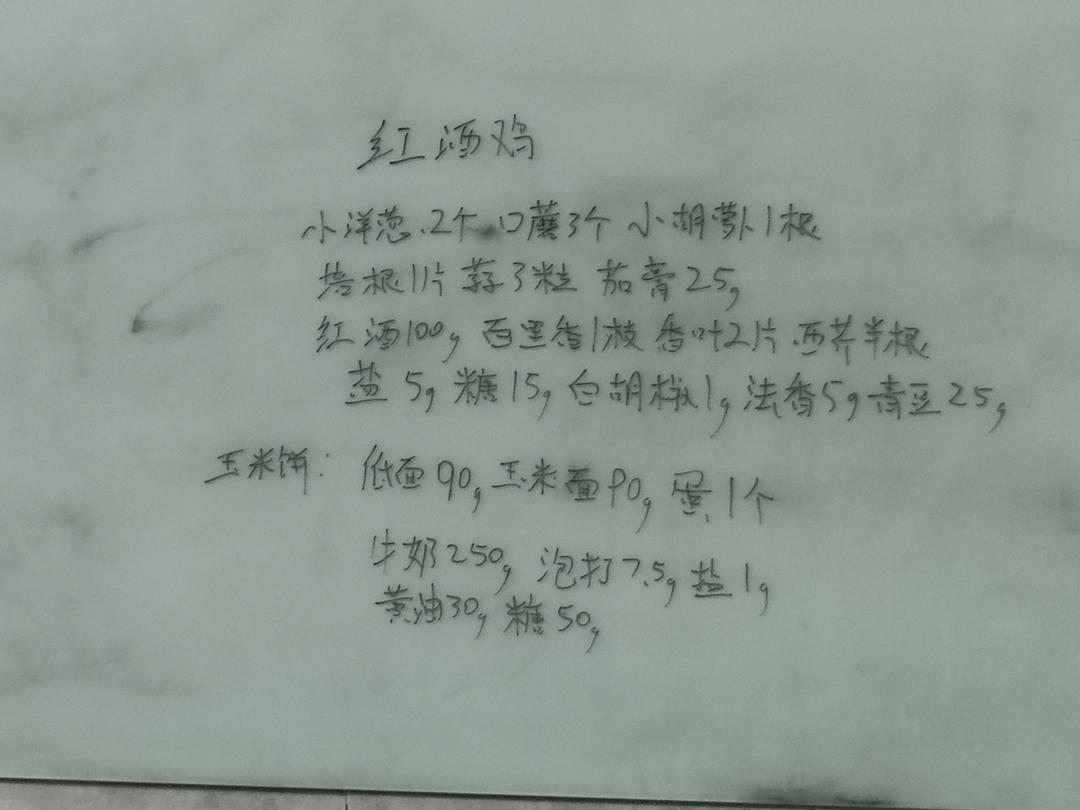 红酒鸡
小洋葱.2个 口蘑3个 小胡萝卜1根
培根1片 蒜3粒 茄膏25g
红酒100g 百里香1枝 香叶2片 西芹半根
盐5g 糖15g 白胡椒1g 法香5g 青豆25g
玉米饼: 低面90g 玉米面90g 蛋1个
牛奶250g 泡打7.5g 盐1g
黄油30g 糖50g